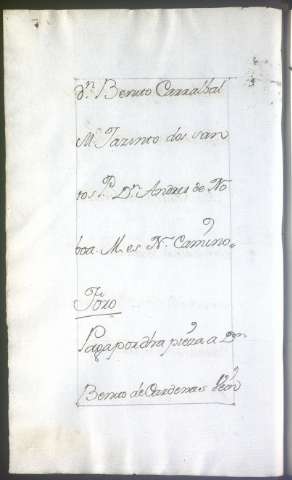 Dn. Benito Carvalbal
M. Jazinto dos san
tos P. Dn. Andres de No
boa. M. es N. Camino.
Foro
Paga por dha pieza a Dn
Benito de Cardenas